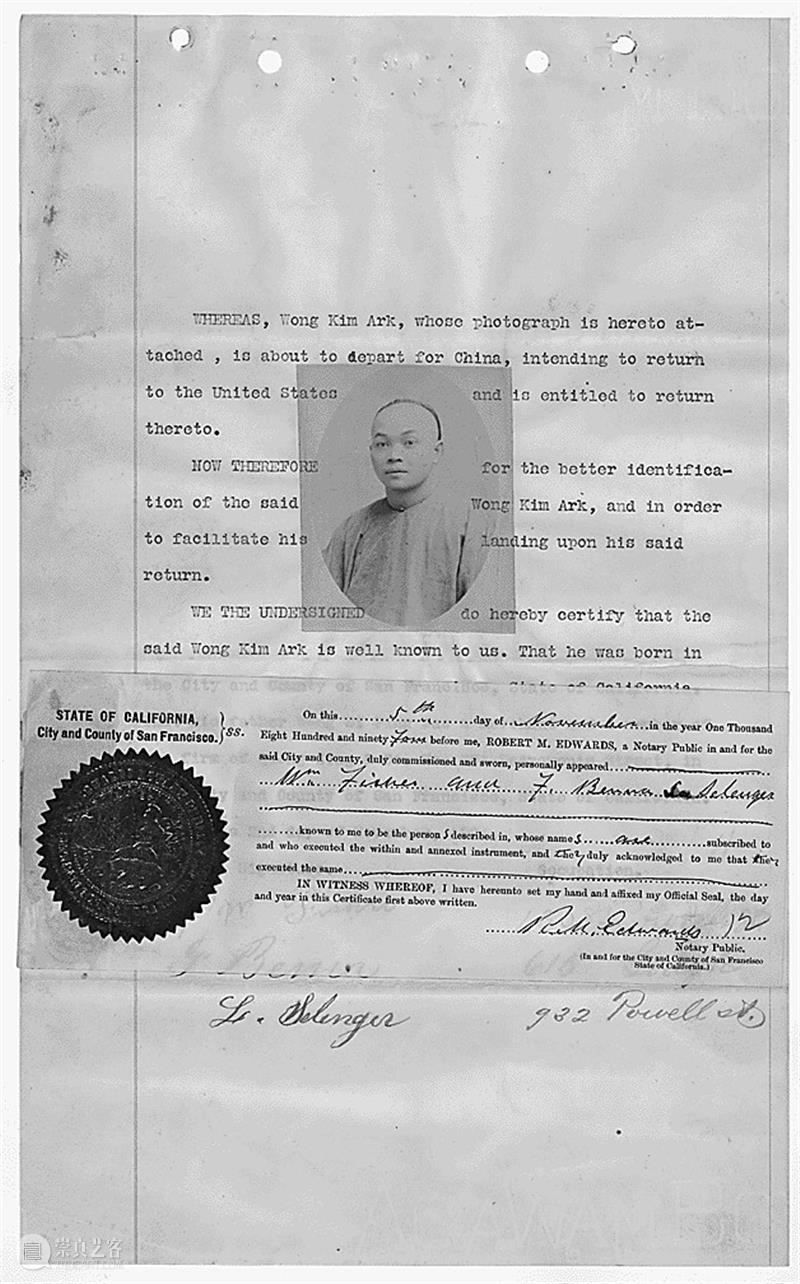 WHEREAS, Wong Kim Ark, whose photograph is hereto at-
tached , is about to depart for China, intending to return
to the United States and is entitled to return
thereto.
NOW THEREFORE for the better identifica-
tion of the said Wong Kim Ark, and in order
to facilitate his landing upon his said
return.
WE THE UNDERSIGNED do hereby certify that the
said Wong Kim Ark is well known to us. That he was born in
the City and County of San Francisco, State of California,
STATE OF CALIFORNIA,
City and County of San Francisco. } ss.
On this 5th day of November in the year One Thousand
Eight Hundred and ninety Four before me, ROBERT M. EDWARDS, a Notary Public in and for the
said City and County, duly commissioned and sworn, personally appeared
Wm Fisher and F. Benna L Selenger
known to me to be the person s described in, whose name s are subscribed to
and who executed the within and annexed instrument, and they duly acknowledged to me that they
executed the same
IN WITNESS WHEREOF, I have hereunto set my hand and affixed my Official Seal, the day
and year in this Certificate first above written.
R. M. Edwards
Notary Public.
(In and for the City and County of San Francisco
State of California.)
L. Selenger 932 Powell st.
崇真艺客